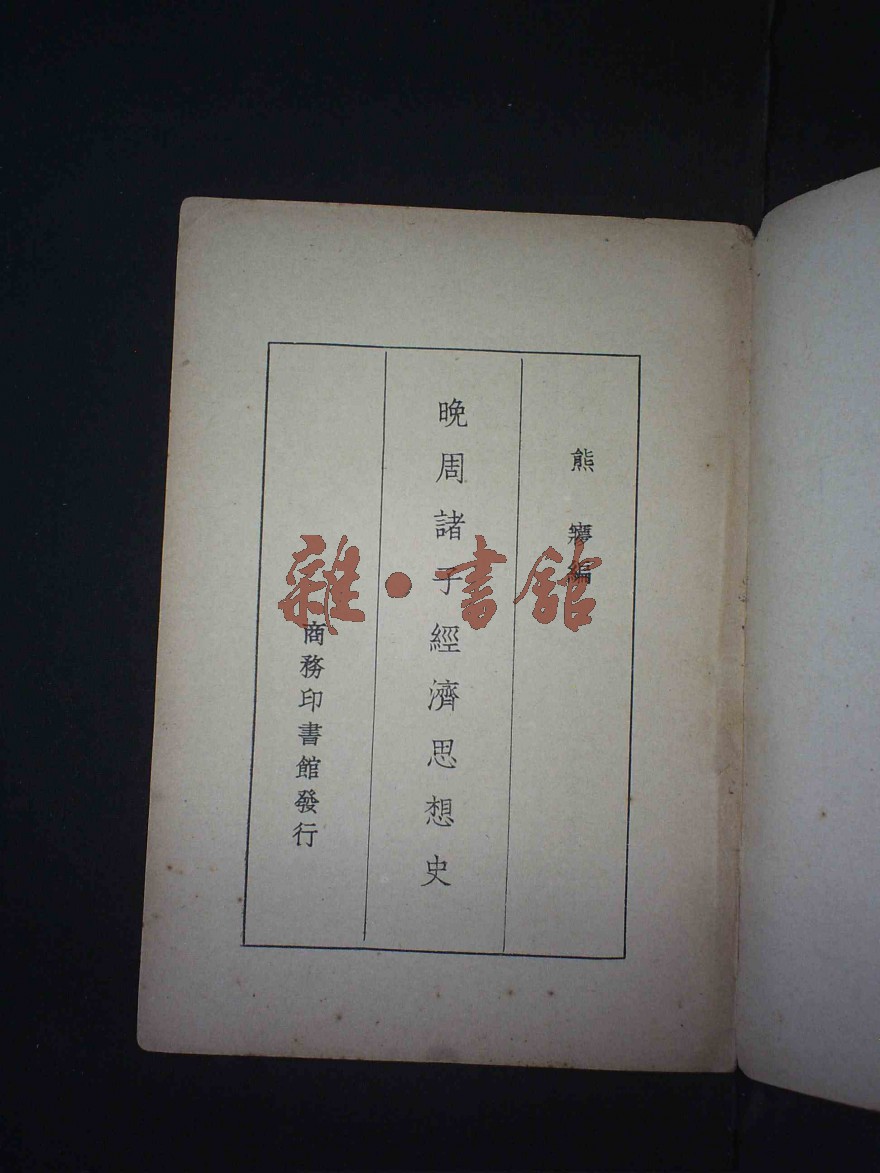 熊㝱編
晚周諸子經濟思想史
商務印書館發行
雜·書館